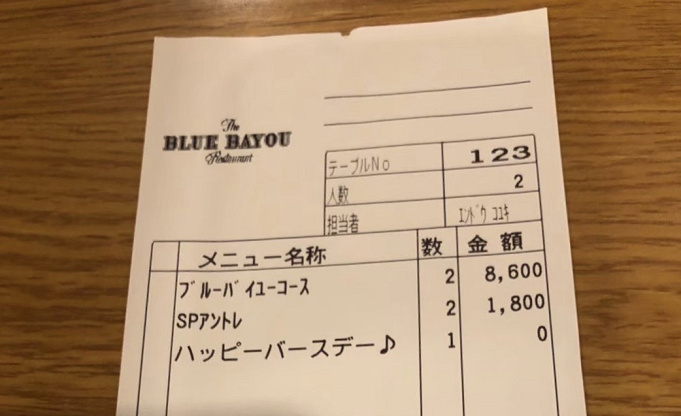 The
BLUE BAYOU
Restaurant
テーブルNo 123
人数 2
担当者 ｴﾝﾄﾞｳ ｺﾕｷ
メニュー名称 数 金 額
ﾌﾞﾙｰﾊﾞｲﾕｰｺｰｽ 2 8,600
SPｱﾝﾄﾚ 2 1,800
ハッピーバースデー♪ 1 0